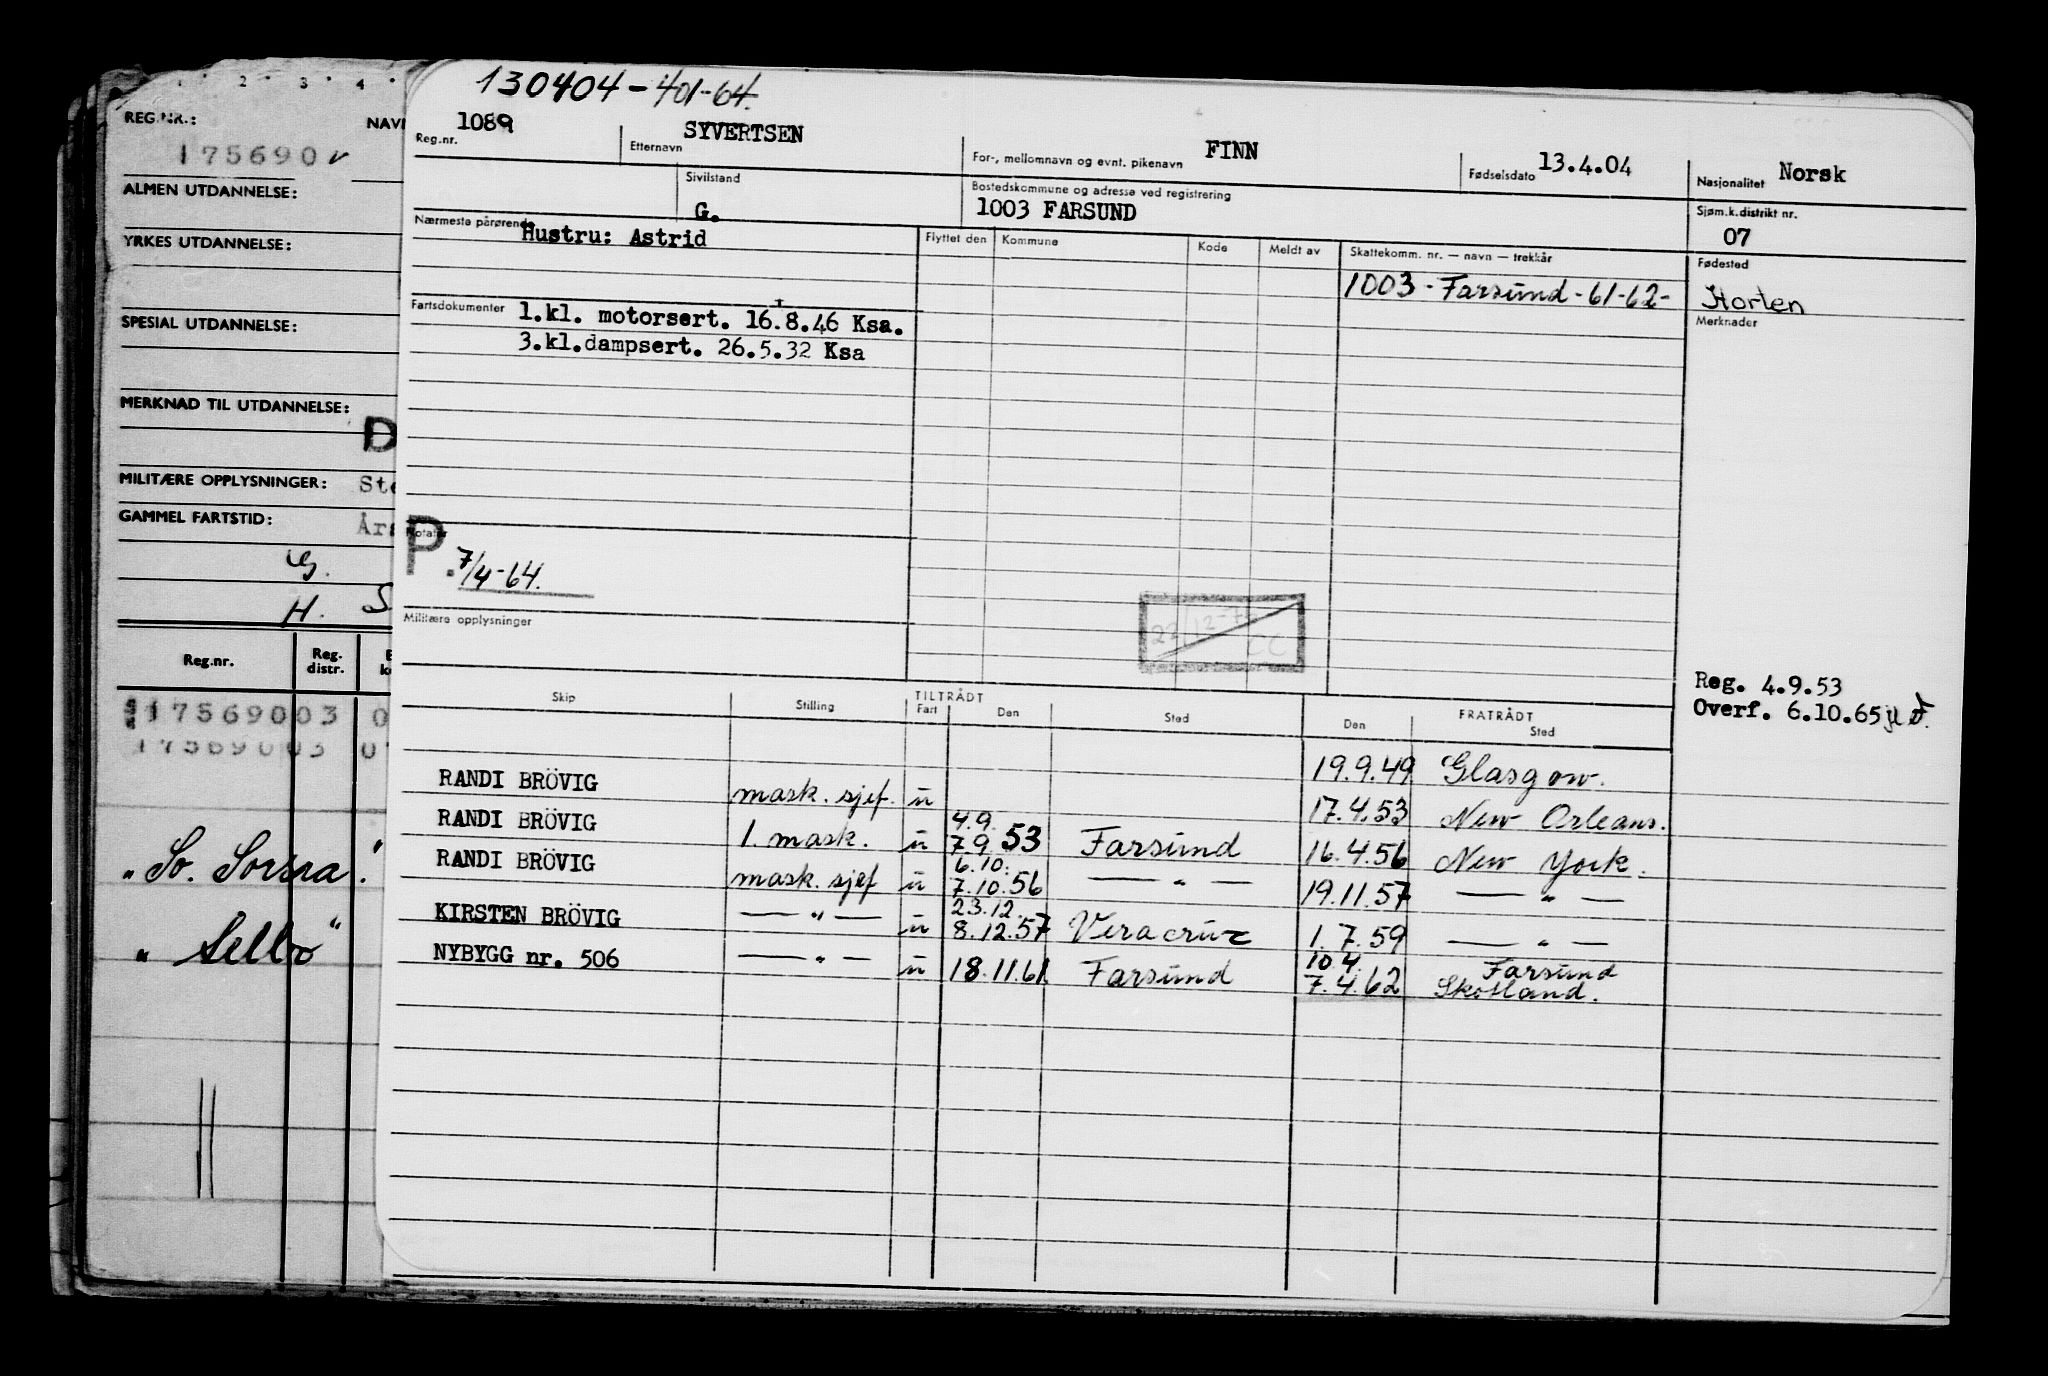 1 2 3 4
REG.NR.: NAVN
175690
ALMEN UTDANNELSE:
YRKES UTDANNELSE:
SPESIAL UTDANNELSE:
MERKNAD TIL UTDANNELSE:
D
MILITÆRE OPPLYSNINGER: Ste
GAMMEL FARTSTID: Års
G.
H. S
Reg.nr. Reg. distr.
17569003 0
17569003 0
"So. Sorsra".
"Sello"
130404-401-64.
1089 SYVERTSEN FINN 13.4.04 Norsk
Reg.nr. Etternavn For-, mellomnavn og evnt. pikenavn Fødselsdato Nasjonalitet
Sivilstand Bostedskommune og adresse ved registrering Sjøm.k.distrikt nr.
G. 1003 FARSUND 07
Nærmeste pårørende Hustru: Astrid
Flyttet den Kommune Kode Meldt av Skattekomm. nr. — navn — trekkår Fødested
1003 - Farsund - 61-62- Horten
Fartsdokumenter 1.kl. motorsert. 16.8.46 Ksa. Merknader
3.kl.dampsert. 26.5.32 Ksa
Notater
P. 7/4-64.
22/12-7 CC
Militære opplysninger
Reg. 4.9.53
Overf. 6.10.65
Skip Stilling TILTRÅDT FRATRÅDT
Fart Den Sted Den Sted
19.9.49 Glasgow.
RANDI BRÖVIG mask. sjef. u 17.4.53 New Orleans.
RANDI BRÖVIG 1. mask. u 4.9. 7.9.53 Farsund 16.4.56 New York.
RANDI BRÖVIG mask. sjef u 6.10. 7.10.56 — " — 19.11.57 — " —
KIRSTEN BRÖVIG — " — u 23.12. 8.12.57 Veracruz 1.7.59 — " —
NYBYGG nr. 506 — " — u 18.11.61. Farsund 10.4. 7.4.62 Farsund Skotland.